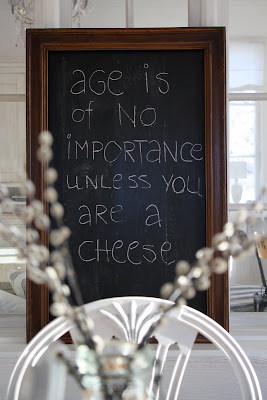 age is
of NO
iMPORTANCE
UNLESS YOU
ARE A
CHEESE